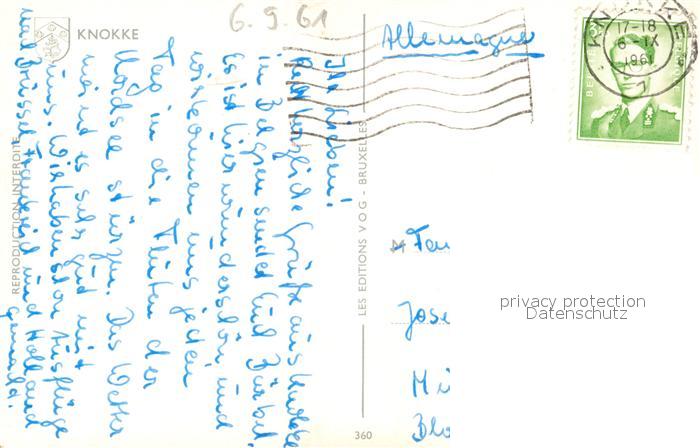 KNOKKE
6.9.61
Allemagne
KNOKKE
17-18
6-IX
1961
Ihr Lieben!
Recht herzliche Grüße aus Knokke
in Belgien sendet Euch Bärbel.
Es ist hier wunderschön und
wir können uns jeden
Tag in die Fluten der
Nordsee stürzen. Das Wetter
meint es sehr gut mit
uns. Wir haben schon Ausflüge
nach Brüssel, Frankreich und Holland
gemacht.
REPRODUCTION INTERDITE
LES EDITIONS VOG - BRUXELLES
360
Fam
Jose
Mü
Blo
privacy protection
Datenschutz